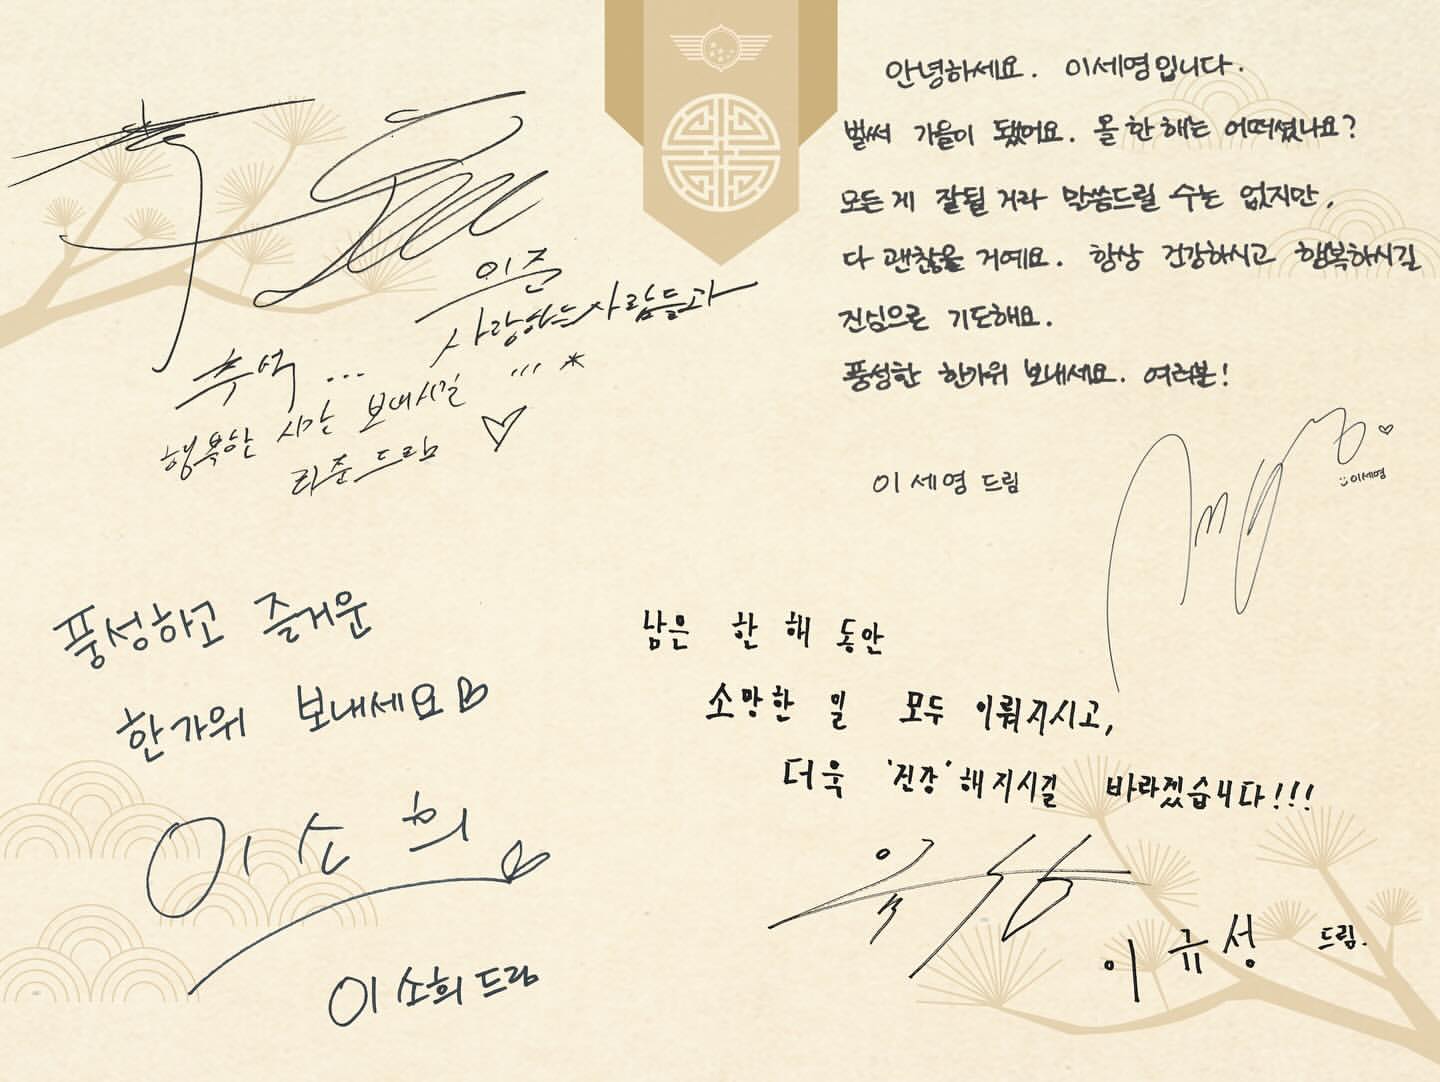 이준
사랑하는 사람들과
추석 ...
행복한 시간 보내시길 ... *
라준 드림
안녕하세요. 이세영입니다.
벌써 가을이 됐어요. 올 한 해는 어떠셨나요?
모든 게 잘될 거라 말씀드릴 수는 없지만,
다 괜찮을 거예요. 항상 건강하시고 행복하시길
진심으론 기도해요.
풍성한 한가위 보내세요. 여러분!
이세영 드림
이세영
풍성하고 즐거운
한가위 보내세요
이소희
이소희 드림
남은 한 해 동안
소망한 일 모두 이뤄지시고,
더욱 '건강'해지시길 바라겠습니다!!!
이규성 드림.